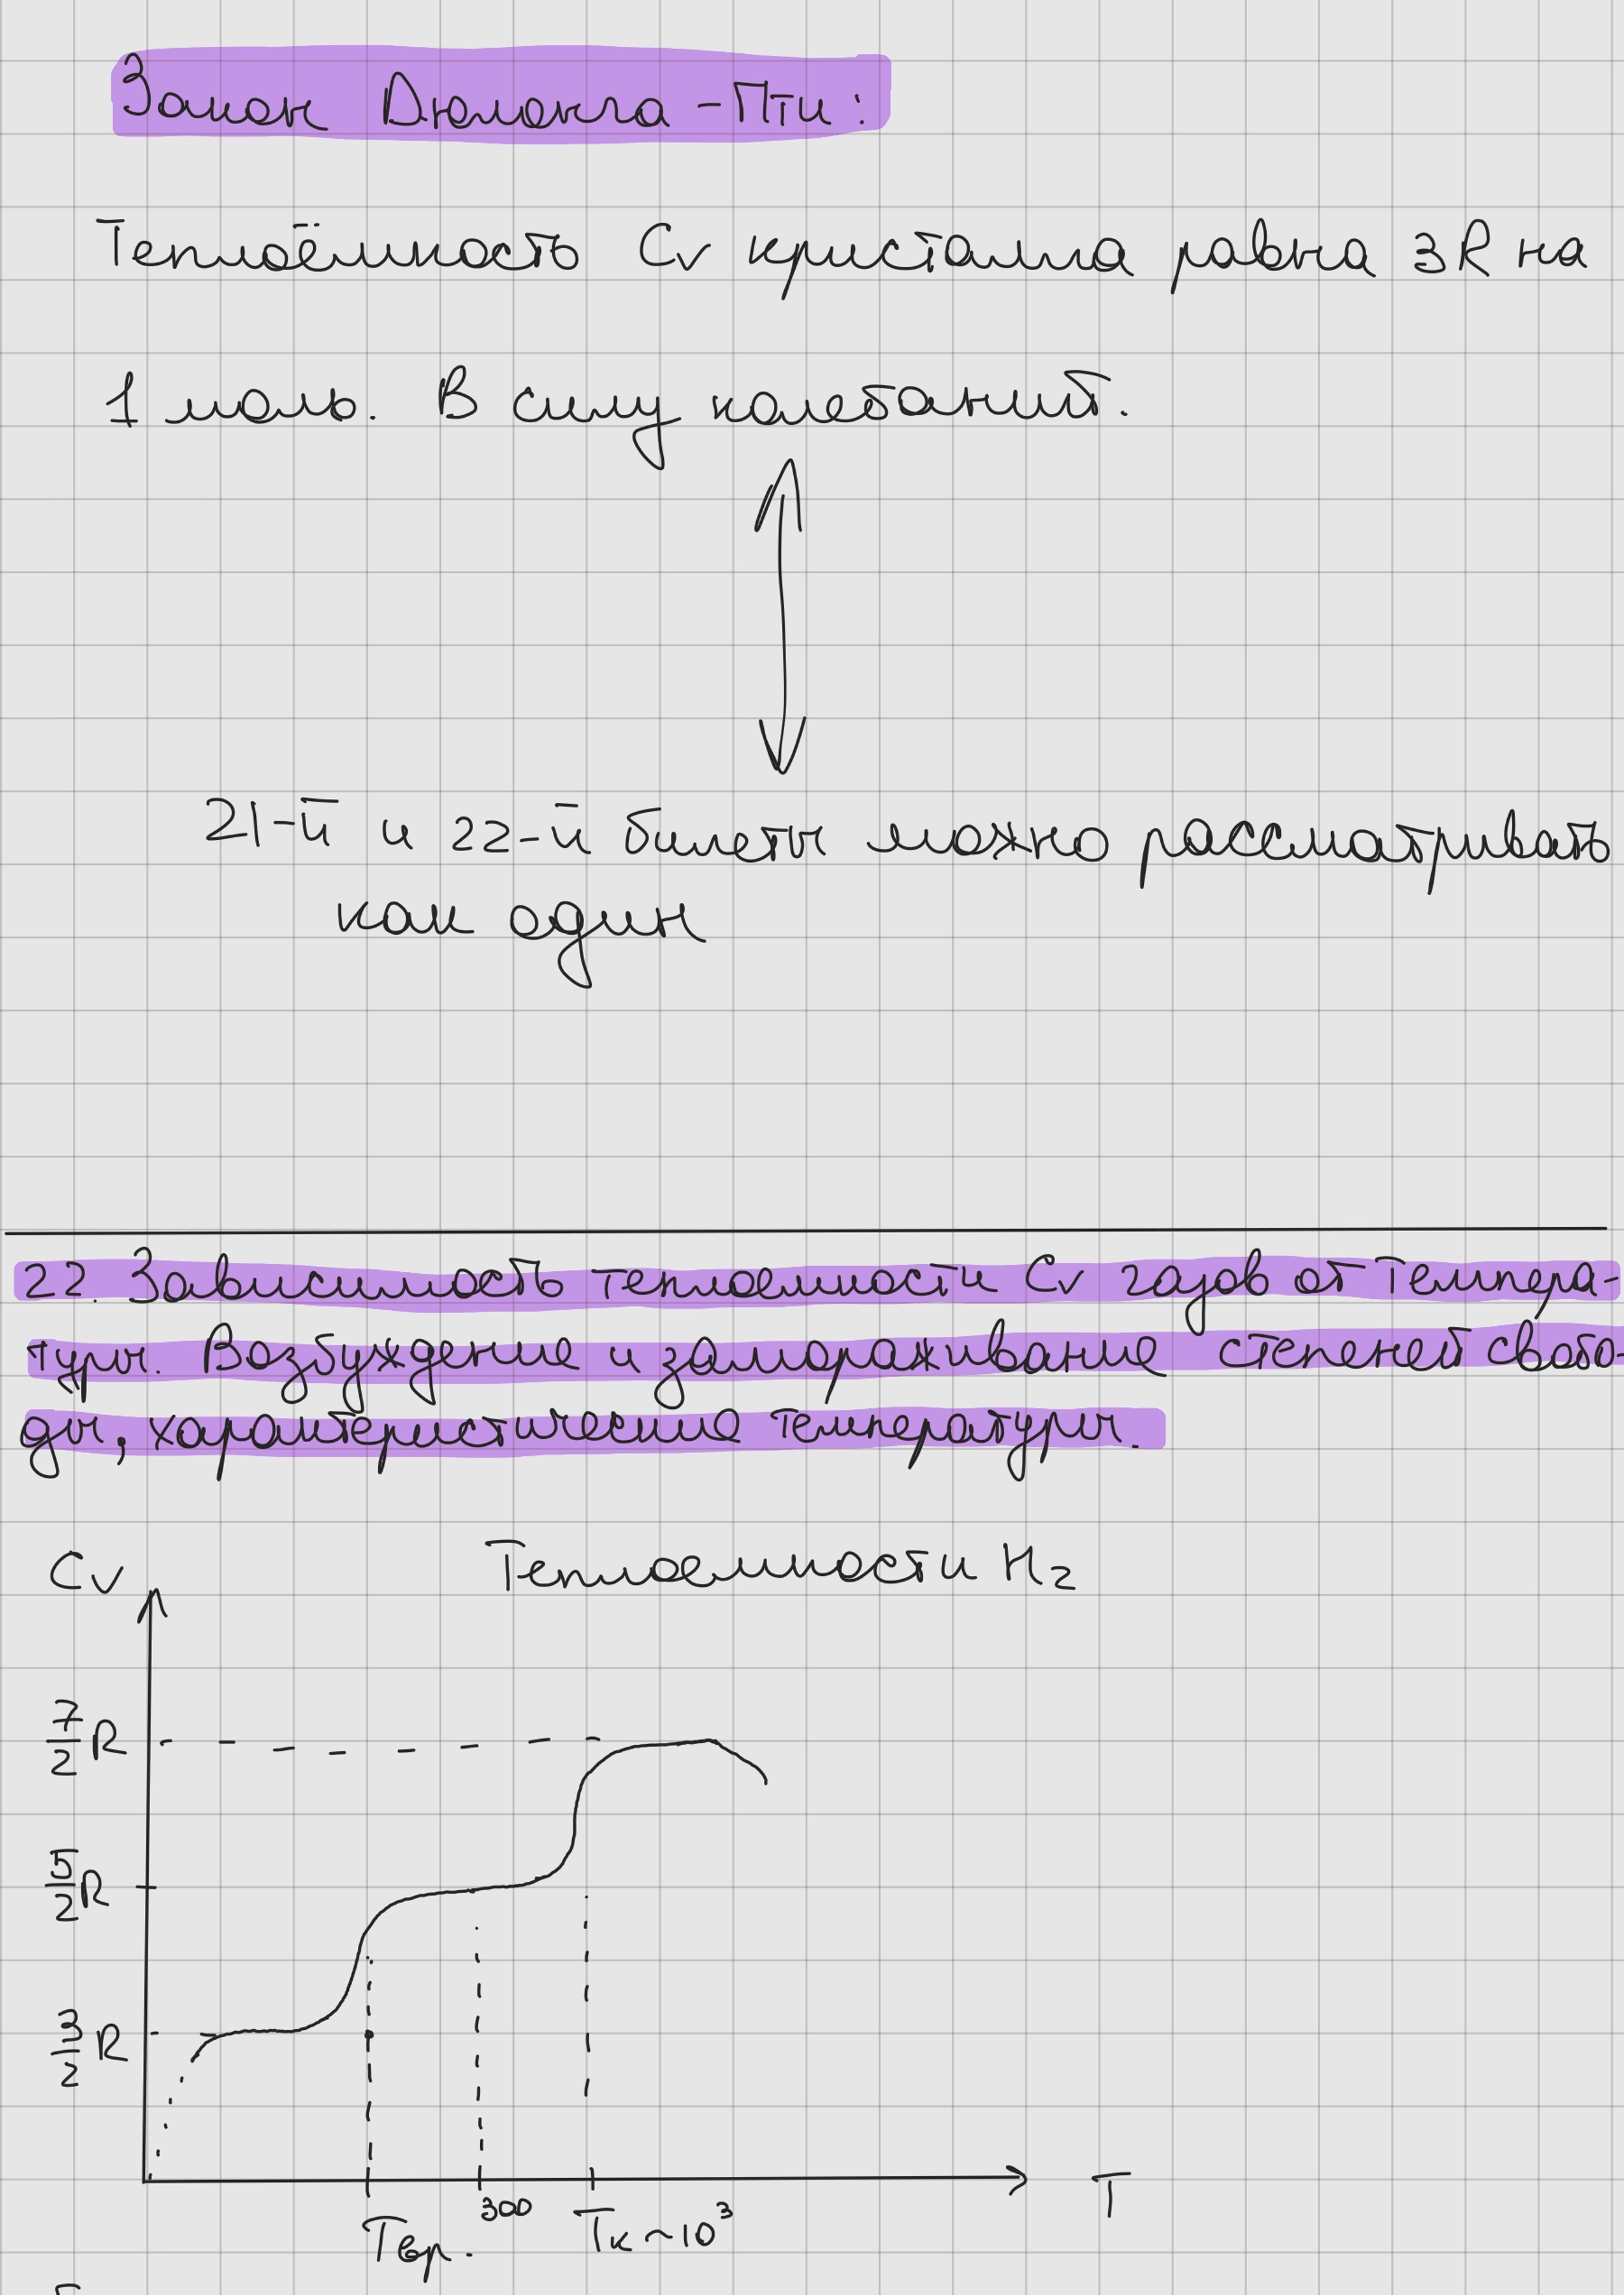 Закон Дюлонга-Пти:
Теплоёмкость Cv кристалла равна 3R на
1 моль. В силу колебаний.
21-й и 22-й билеты можно рассматривать
как один
22. Зависимость теплоемкости Cv газов от темпера-
туры. Возбуждение и замораживание степеней свобо-
ды, характеристические температуры.
Cv
Теплоемкости H₂
7/2 R
5/2 R
3/2 R
Tвр.
300
Tк ~ 10³
T